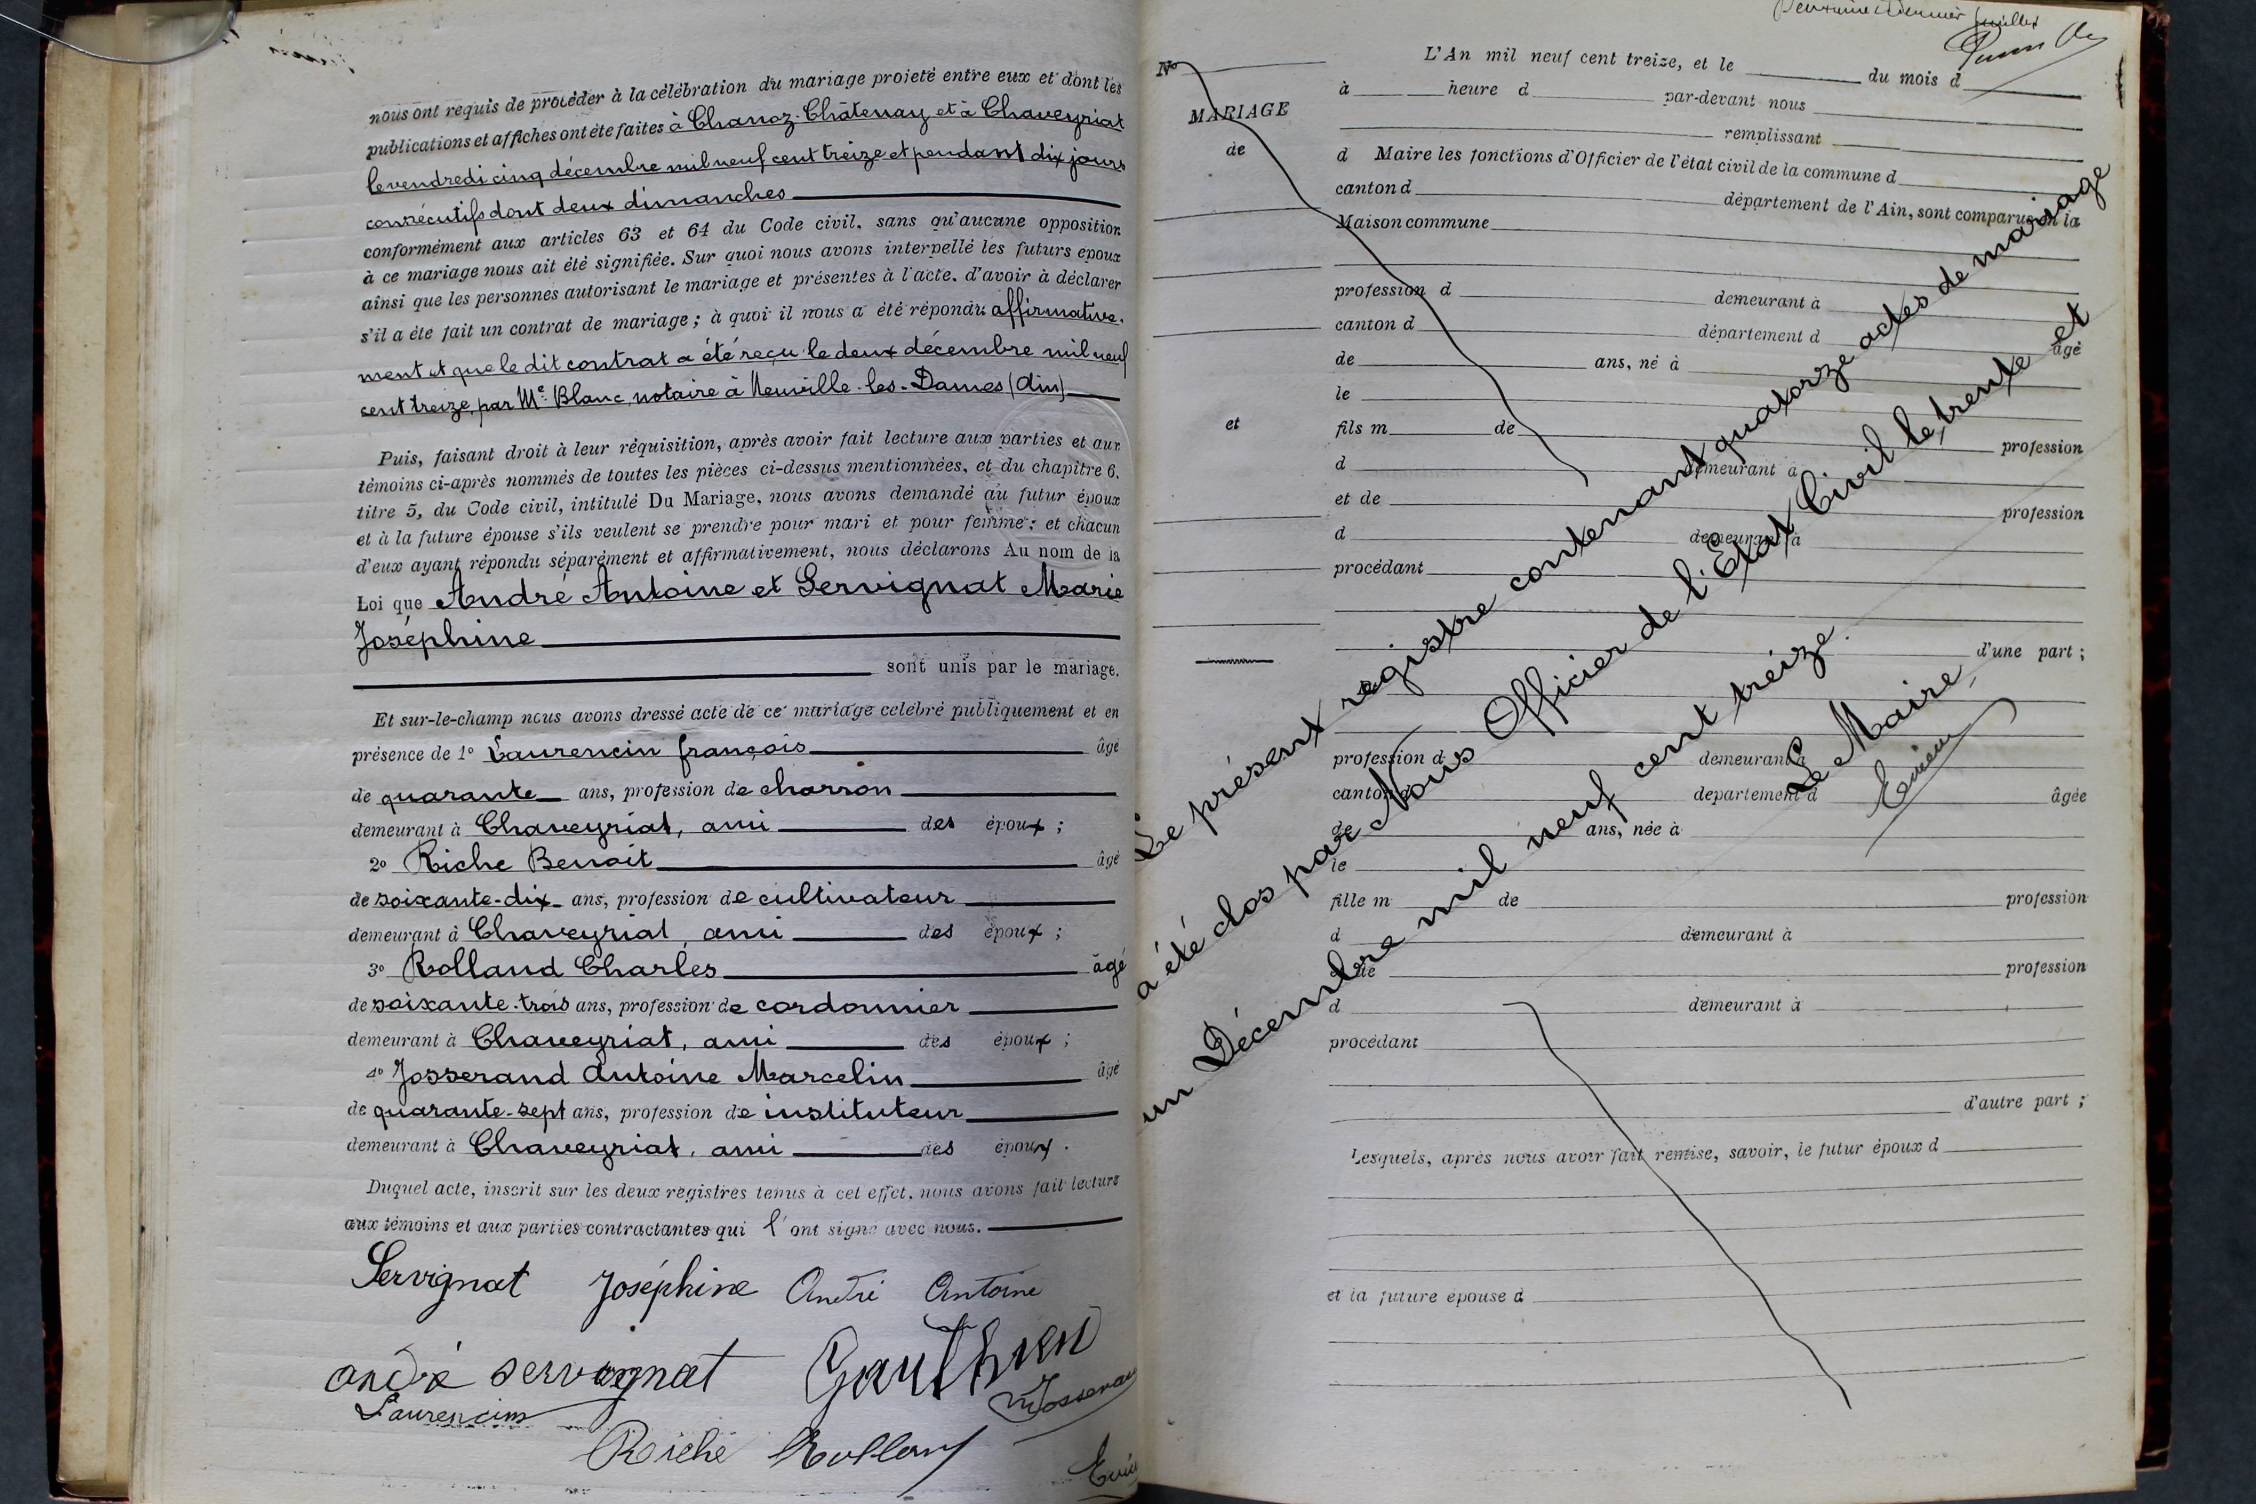 nous ont requis de procéder à la célébration du mariage projeté entre eux et dont les
publications et affiches ont été faites à Chanoz-Châtenay et à Chaveyriat
le vendredi cinq décembre mil neuf cent treize et pendant dix jours
consécutifs dont deux dimanches
conformément aux articles 63 et 64 du Code civil, sans qu'aucune opposition
à ce mariage nous ait été signifiée. Sur quoi nous avons interpellé les futurs époux
ainsi que les personnes autorisant le mariage et présentes à l'acte, d'avoir à déclarer
s'il a été fait un contrat de mariage ; à quoi il nous a été répondu affirmative-
ment et que le dit contrat a été reçu le deux décembre mil neuf
cent treize, par Me Blanc, notaire à Neuville-les-Dames (Ain)
Puis, faisant droit à leur réquisition, après avoir fait lecture aux parties et aux
témoins ci-après nommés de toutes les pièces ci-dessus mentionnées, et du chapitre 6,
titre 5, du Code civil, intitulé Du Mariage, nous avons demandé au futur époux
et à la future épouse s'ils veulent se prendre pour mari et pour femme ; et chacun
d'eux ayant répondu séparément et affirmativement, nous déclarons Au nom de la
Loi que André Antoine et Servignat Marie
Joséphine
sont unis par le mariage.
Et sur-le-champ nous avons dressé acte de ce mariage célébré publiquement et en
présence de 1° Laurencin françois âgé
de quarante ans, profession de charron
demeurant à Chaveyriat, ami des époux ;
2° Riche Benoit âgé
de soixante-dix ans, profession de cultivateur
demeurant à Chaveyriat, ami des époux ;
3° Rolland Charles âgé
de soixante-trois ans, profession de cordonnier
demeurant à Chaveyriat, ami des époux ;
4° Josserand Antoine Marcelin âgé
de quarante-sept ans, profession de instituteur
demeurant à Chaveyriat, ami des époux.
Duquel acte, inscrit sur les deux registres tenus à cet effet, nous avons fait lecture
aux témoins et aux parties contractantes qui l'ont signé avec nous.
Servignat Joséphine André Antoine
andré servignat Gauthier
Laurencin Josseran
Riche Rolland
N°
MARIAGE
de
et
L'An mil neuf cent treize, et le du mois d
à heure d par-devant nous
remplissant
d Maire les fonctions d'Officier de l'état civil de la commune d
canton d département de l'Ain, sont comparus en la
Maison commune
profession d demeurant à
canton d département d âgé
de ans, né à
le
fils m de profession
d demeurant à
et de profession
d demeurant à
procédant
d'une part ;
profession d demeurant à
canton d département d âgée
de ans, née à
le
fille m de profession
d demeurant à
et de profession
d demeurant à
procédant
d'autre part ;
Lesquels, après nous avoir fait remise, savoir, le futur époux d
et la future épouse d
Le présent registre contenant quatorze actes de mariage
a été clos par Nous Officier de l'Etat Civil le trente et
un Décembre mil neuf cent treize.
Le Maire,